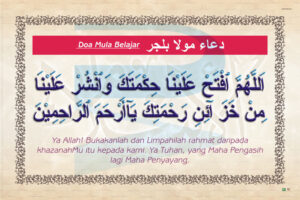 Doa Mula Belajar دعاء مولا بلاجر
اَللّٰهُمَّ افْتَحْ عَلَيْنَا حِكْمَتَكَ وَانْشُرْ عَلَيْنَا
مِنْ خَزَآئِنِ رَحْمَتِكَ يَآأَرْحَمَ الرَّاحِمِيْنَ
Ya Allah! Bukakanlah dan Limpahilah rahmat daripada
khazanahMu itu kepada kami. Ya Tuhan, yang Maha Pengasih
lagi Maha Penyayang.